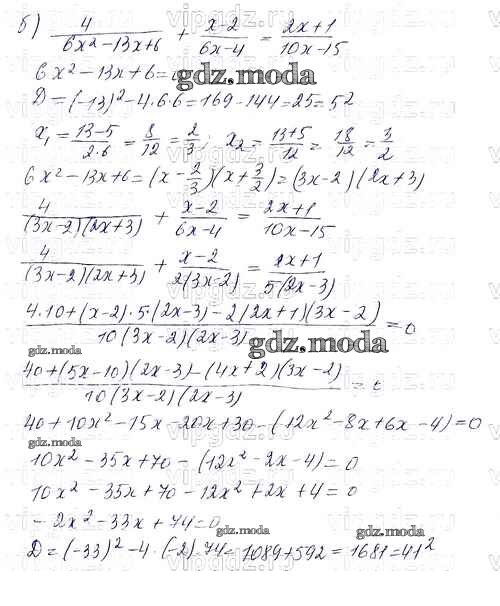 б) 4/(6x²-13x+6) + (x-2)/(6x-4) = (2x+1)/(10x-15)
6x²-13x+6=
gdz.moda
D=(-13)²-4·6·6=169-144=25=5²
x₁=(13-5)/(2·6)=8/12=2/3; x₂=(13+5)/12=18/12=3/2
6x²-13x+6=(x-2/3)(x+3/2)=(3x-2)(2x+3)
4/((3x-2)(2x+3)) + (x-2)/(6x-4) = (2x+1)/(10x-15)
4/((3x-2)(2x+3)) + (x-2)/(2(3x-2)) = (2x+1)/(5(2x-3))
(4·10+(x-2)·5·(2x-3)-2(2x+1)(3x-2))/(10(3x-2)(2x-3))=0
gdz.moda
gdz.moda
(40+(5x-10)(2x-3)-(4x+2)(3x-2))/(10(3x-2)(2x-3))=
gdz.moda
40+10x²-15x-20x+30-(12x²-8x+6x-4)=0
gdz.moda
10x²-35x+70-(12x²-2x-4)=0
10x²-35x+70-12x²+2x+4=0
-2x²-33x+74=0
gdz.moda
gdz.moda
D=(-33)²-4·(-2)·74=1089+592=1681=41²
gdz.moda